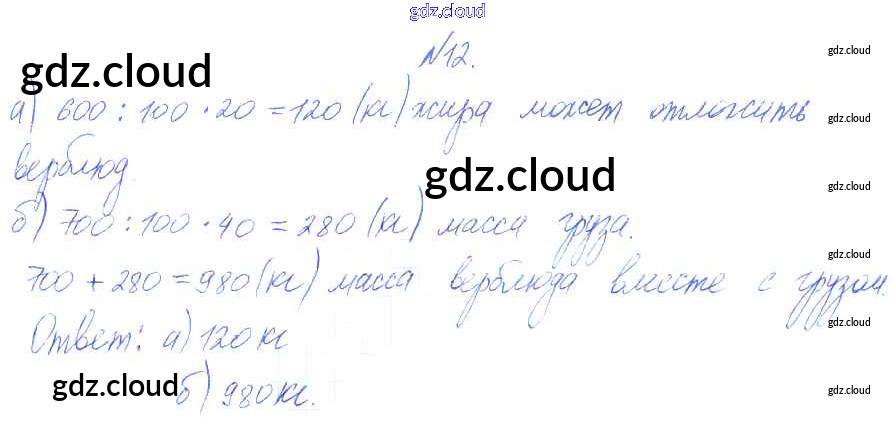 gdz.cloud
№12.
gdz.cloud
gdz.cloud
а) 600 : 100 · 20 = 120 (кг) жира может отложить
gdz.cloud
верблюд.
gdz.cloud
gdz.cloud
б) 700 : 100 · 40 = 280 (кг) масса груза.
gdz.cloud
700 + 280 = 980 (кг) масса верблюда вместе с грузом.
gdz.cloud
Ответ: а) 120 кг
gdz.cloud
б) 980 кг.
gdz.cloud